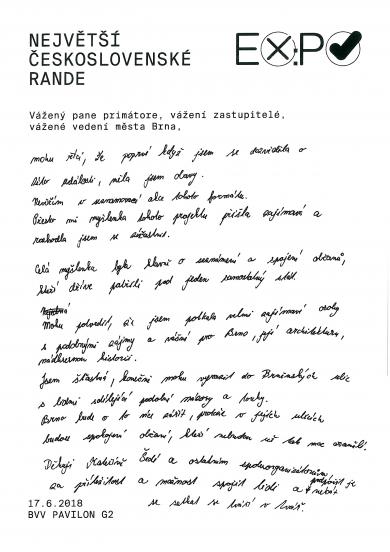 NEJVĚTŠÍ
ČESKOSLOVENSKÉ
RANDE
EXPO
Vážený pane primátore, vážení zastupitelé,
vážené vedení města Brna,
mohu říci, že poprvé když jsem se dozvěděla o
této události, měla jsem obavy.
Nevěřím v seznamovací akce tohoto formátu.
Přesto mi myšlenka tohoto projektu přišla zajímavá a
rozhodla jsem se zúčastnit.
Celá myšlenka byla hlavně o seznámení a spojení občanů,
kteří dříve patřili pod jeden samostatný stát.
Mohu potvrdit, že jsem potkala velmi zajímavé osoby
s podobnými zájmy a vášní pro Brno, její architekturu,
nádhernou historii.
Jsem šťastná, konečně mohu vyrazit do Brněnských ulic
s lidmi sdílející podobné názory a touhy.
Brno bude o to více zářit, protože v jejich ulicích
budou spokojení občané, kteří nebudou už tak moc osamělí.
Děkuji Kateřině Šedé a ostatním spoluorganizátorům,
za příležitost a možnost spojit lidi a podpořit je nebát
se setkat se tváří v tvář.
17.6.2018
BVV PAVILON G2